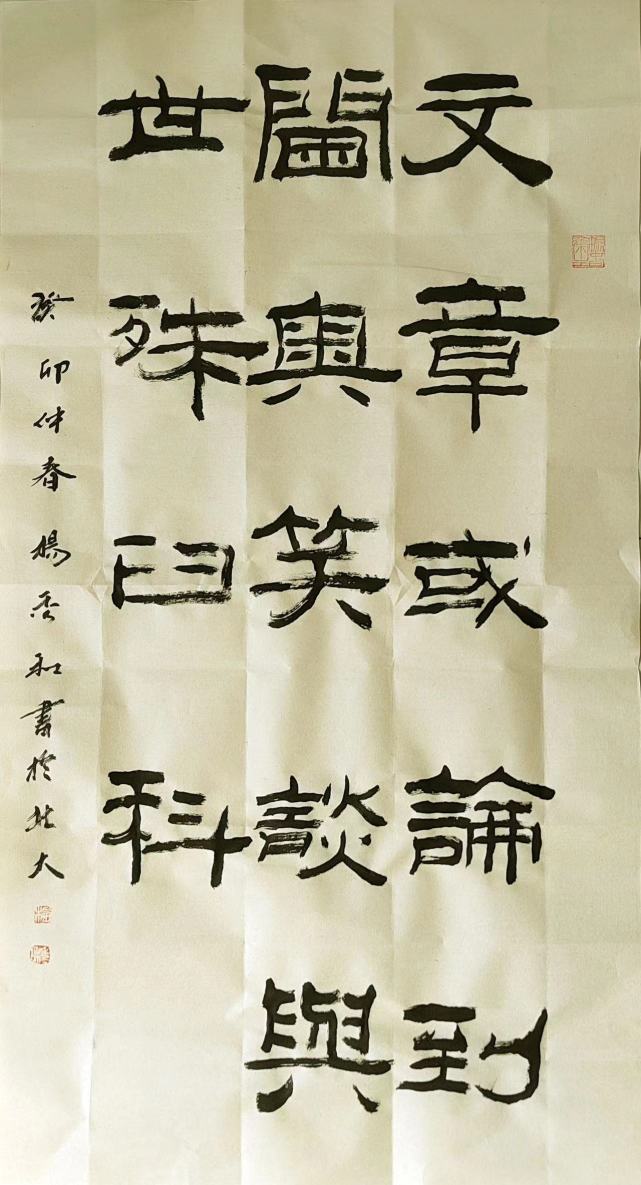 文章或論到
閫奧笑談與
世殊臼科
癸卯仲春楊和書於北大